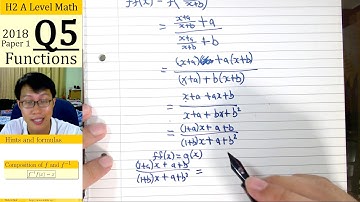 H2 A Level Math
2018
Paper 1
Q5
Functions
Hints and formulas
Composition of f and f⁻¹
f⁻¹f(x) = x
ff(x) = f(x+a/x+b)
= (x+a/x+b + a)/(x+a/x+b + b)
= ((x+a) + a(x+b))/((x+a) + b(x+b))
= (x+a+ax+b)/(x+a+bx+b²)
= ((1+a)x+a+b)/((1+b)x+a+b²)
ff(x) = g(x)
((1+a)x+a+b)/((1+b)x+a+b²) =